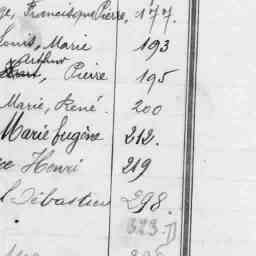 Francisque Pierre, 177.
Louis, Marie 193
Arthur
Pierre 195
Marie, René. 200
Marie Eugène 212.
Henri 219
Sébastien 298.
323.